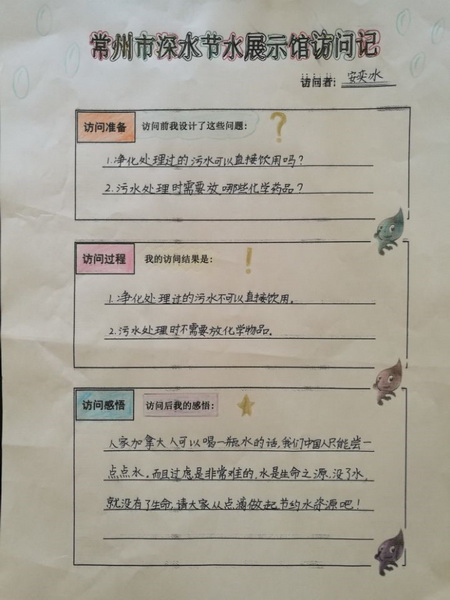 常州市深水节水展示馆访问记
访问者：安奕水
访问准备 访问前我设计了这些问题： ?
1.净化处理过的污水可以直接饮用吗?
2.污水处理时需要放哪些化学药品?
访问过程 我的访问结果是： !
1.净化处理过的污水不可以直接饮用。
2.污水处理时不需要放化学物品。
访问感悟 访问后我的感悟：
人家加拿大人可以喝一瓶水的话,我们中国人只能尝一
点点水。而且过虑是非常难的,水是生命之源,没了水,
就没有了生命,请大家从点滴做起节约水资源吧!